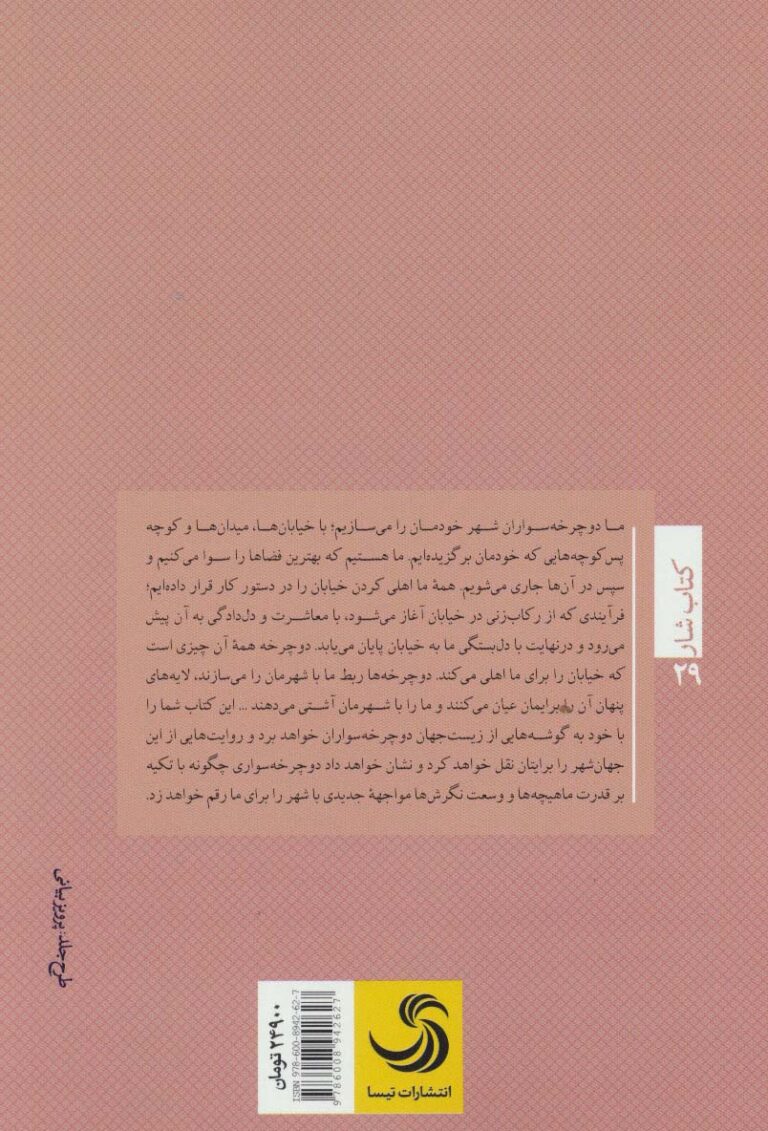 ما دوچرخه‌سواران شهر خودمان را می‌سازیم؛ با خیابان‌ها، میدان‌ها و کوچه
پس‌کوچه‌هایی که خودمان برگزیده‌ایم. ما هستیم که بهترین فضاها را سوا می‌کنیم و
سپس در آن‌ها جاری می‌شویم. همهٔ ما اهلی کردن خیابان را در دستور کار قرار داده‌ایم؛
فرآیندی که از رکاب‌زنی در خیابان آغاز می‌شود، با معاشرت و دل‌دادگی به آن پیش
می‌رود و درنهایت با دل‌بستگی ما به خیابان پایان می‌یابد. دوچرخه همهٔ آن چیزی است
که خیابان را برای ما اهلی می‌کند. دوچرخه‌ها ربط ما با شهرمان را می‌سازند، لایه‌های
پنهان آن را برایمان عیان می‌کنند و ما را با شهرمان آشتی می‌دهند ... این کتاب شما را
با خود به گوشه‌هایی از زیست‌جهان دوچرخه‌سواران خواهد برد و روایت‌هایی از این
جهان‌شهر را برایتان نقل خواهد کرد و نشان خواهد داد دوچرخه‌سواری چگونه با تکیه
بر قدرت ماهیچه‌ها و وسعت نگرش‌ها مواجههٔ جدیدی با شهر را برای ما رقم خواهد زد.
کتاب شار
۲۹
طرح جلد: پرویز بیانی
انتشارات تیسا
ISBN 978-600-8942-62-7
9786008942627
۲۴۹۰۰ تومان